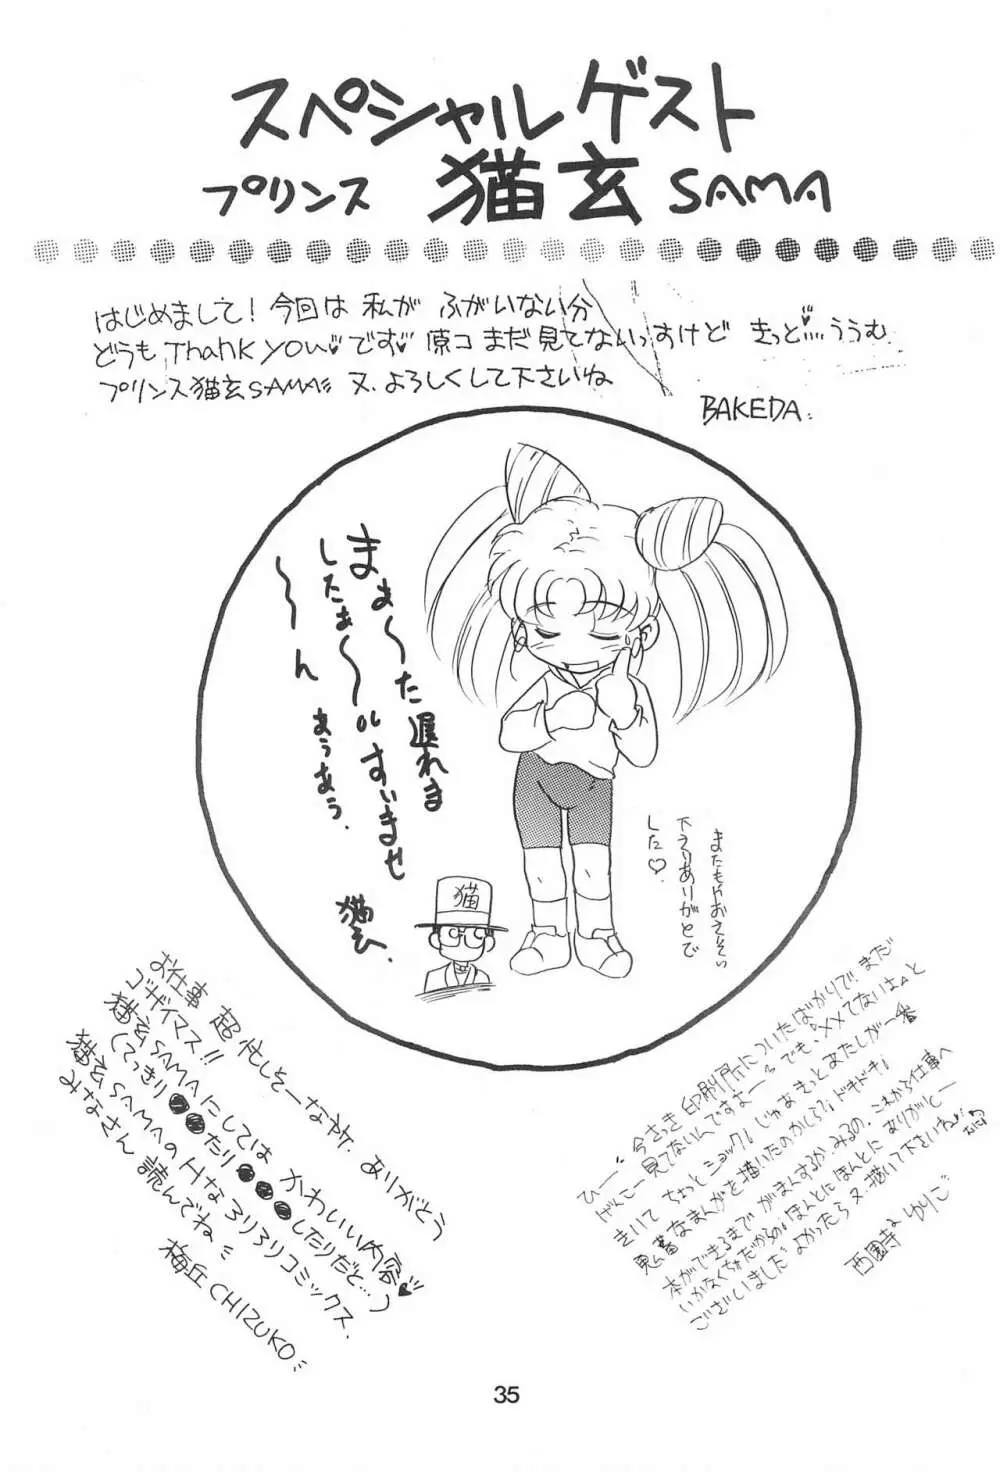 スペシャルゲスト
プリンス 猫玄 SAMA
はじめまして！今回は 私が ふがいない分
どうも Thank you♥です♥ 原コ まだ見てないっすけど きっと♥……ううむ
プリンス猫玄SAMA 又、よろしくして下さいね
BAKEDA
まぁ〜た遅れま
したぁ〜〜"すいませ
〜〜ん
まぅあぅ.
猫玄.
猫
またもやおえそい
下えりありがとで
した♡
お仕事 超 忙しそーなゲ ありがとう
ゴザイマス!!
猫玄SAMAにしては かわいい内容♥
(てっきり●●たり●●●したりだと…)
猫玄SAMAのHなろりろりコミックス.
みなさん 読んでね
梅丘CHIZUKO
ひー 今さっき印刷所についたばかりで、まだ
げんこー見てないんですよー でも、"××てないさ"と
きいて ちょっとショック! じゃあきっとあたしが一番
鬼畜なまんがを描いたのかしら?! ドキドキ!
本ができるまで がまんするか、みるの. これから仕事へ
いかなくちゃだからの! ほんとにほんとに ありがとー
ございました よかったら 又、描いて下さいね
西園寺 ゆりこ
35